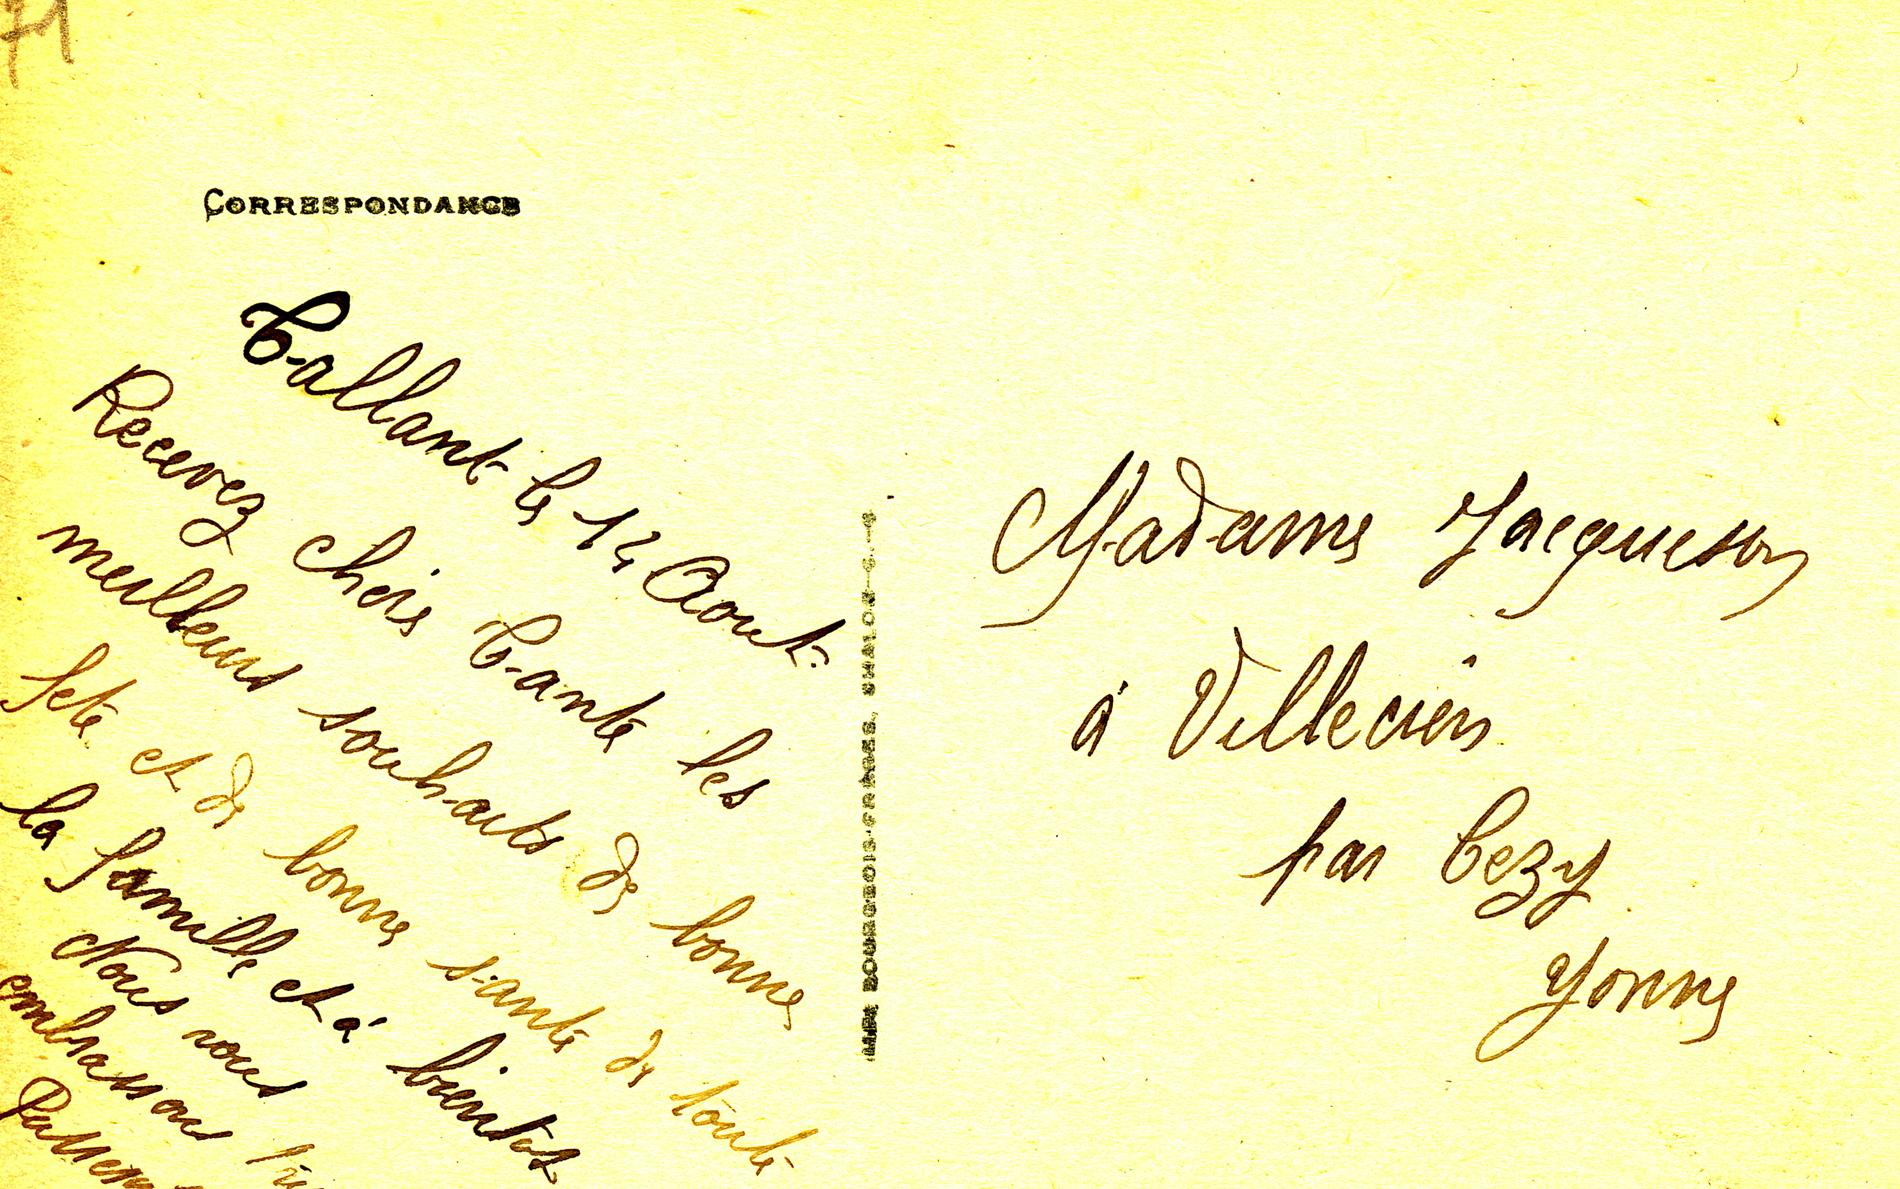 71
CORRESPONDANCE
Tallant le 14 Aout.
Recevez chère Tante les
meilleurs souhaits de bonne
fete et de bonne sante de toute
la famille et à bientot
Nous vous
embrassons
IMP. BOURGEOIS FRÈRES, CHALON-S.-S.
Madame Jacqueson
à Villecien
par Cezy
Yonne